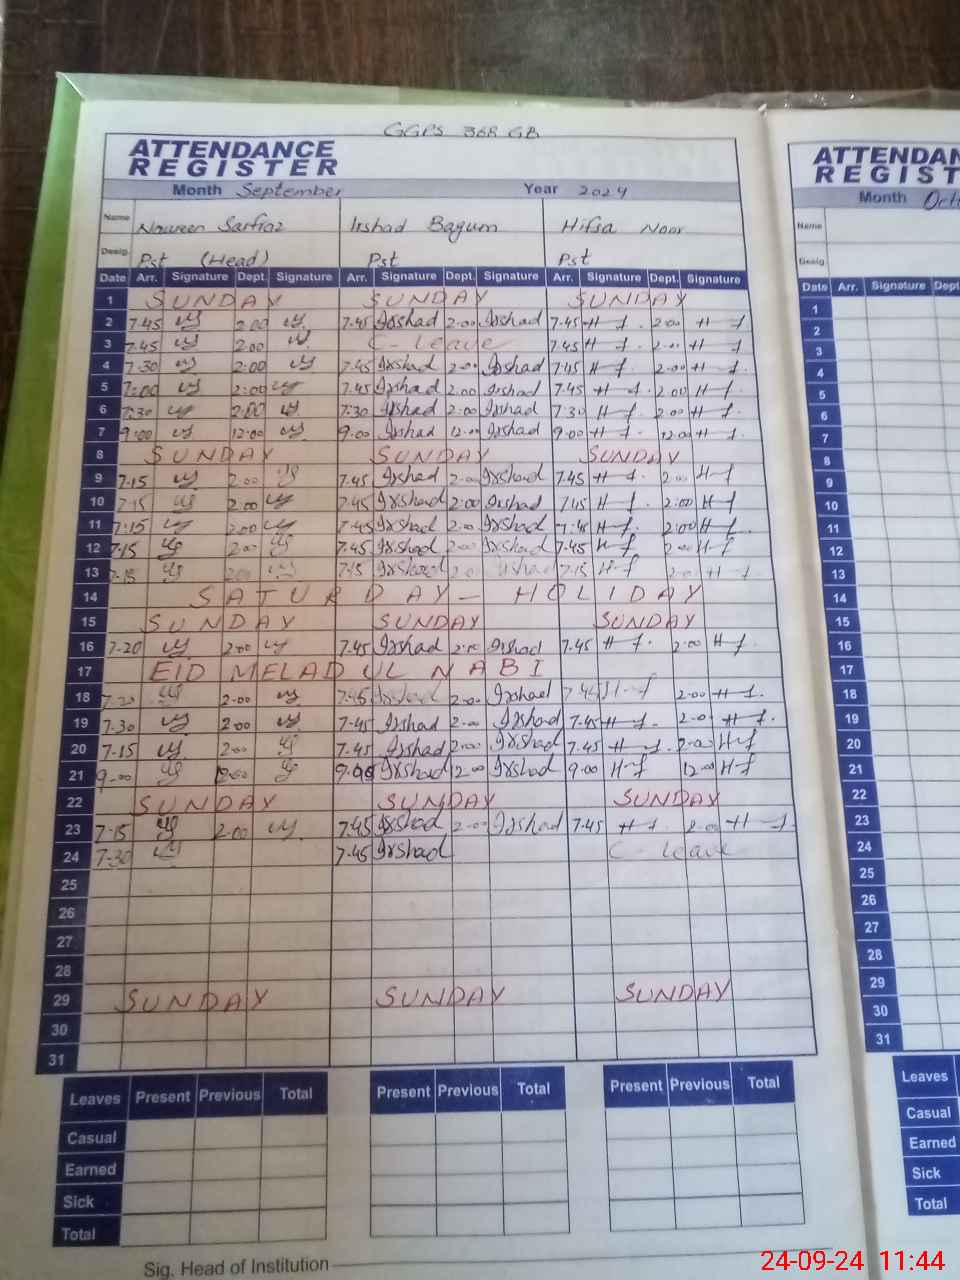 GGPS 36R GB
ATTENDANCE REGISTER
Month September Year 2024
Name Nowreen Sarfraz Irshad Bagum Hifsa Noor
Desig. Pst (Head) Pst Pst
Date Arr. Signature Dept. Signature Arr. Signature Dept. Signature Arr. Signature Dept. Signature
1 SUNDAY SUNDAY SUNDAY
2 7.45 2.00 7.45 Irshad 2.00 Irshad 7.45 H-f 2.00 H-f
3 7.45 2.00 C-Leave 7.45 H-f 2.00 H-f
4 7.30 2:00 7.45 Irshad 2.00 Irshad 7.45 H-f 2.00 H-f
5 7:00 2:00 7.45 Irshad 2.00 Irshad 7.45 H-f 2.00 H-f
6 7:30 2:00 7:30 Irshad 2:00 Irshad 7:30 H-f 2.00 H-f
7 9:00 12:00 9.00 Irshad 12.00 Irshad 9.00 H-f 12.00 H-f
8 SUNDAY SUNDAY SUNDAY
9 7.15 2.00 7.45 Irshad 2.00 Irshad 7.45 H-f 2.00 H-f
10 7.15 2.00 7.45 Irshad 2:00 Irshad 7.45 H-f 2:00 H-f
11 7:15 2:00 7.45 Irshad 2.00 Irshad 7:45 H-f 2:00 H-f
12 7.15 2.00 7.45 Irshad 2.00 Irshad 7.45 H-f 2.00 H-f
13 7.15 2.00 7.15 Irshad 2.00 Irshad 7.15 H-f 2.00 H-f
14 SATURDAY - HOLIDAY
15 SUNDAY SUNDAY SUNDAY
16 7-20 2.00 7.45 Irshad 2.00 Irshad 7.45 H-f 2.00 H-f
17 EID MELAD UL NABI
18 7.20 2.00 7.45 Irshad 2.00 Irshad 7.45 H-f 2.00 H-f
19 7.30 2.00 7.45 Irshad 2.00 Irshad 7.45 H-f 2.00 H-f
20 7-15 2.00 7.45 Irshad 2.00 Irshad 7.45 H-f 2.00 H-f
21 9.00 12.00 9.00 Irshad 12.00 Irshad 9.00 H-f 12.00 H-f
22 SUNDAY SUNDAY SUNDAY
23 7.15 2.00 7.45 Irshad 2.00 Irshad 7.45 H-f 2.00 H-f
24 7.30 7.45 Irshad C-Leave
25
26
27
28
29 SUNDAY SUNDAY SUNDAY
30
31
Leaves Present Previous Total Present Previous Total Present Previous Total
Casual
Earned
Sick
Total
Sig. Head of Institution
ATTENDAN
REGIST
Month
Name
Desig
Date Arr. Signature Dept
1
2
3
4
5
6
7
8
9
10
11
12
13
14
15
16
17
18
19
20
21
22
23
24
25
26
27
28
29
30
31
Leaves
Casual
Earned
Sick
Total
24-09-24 11:44